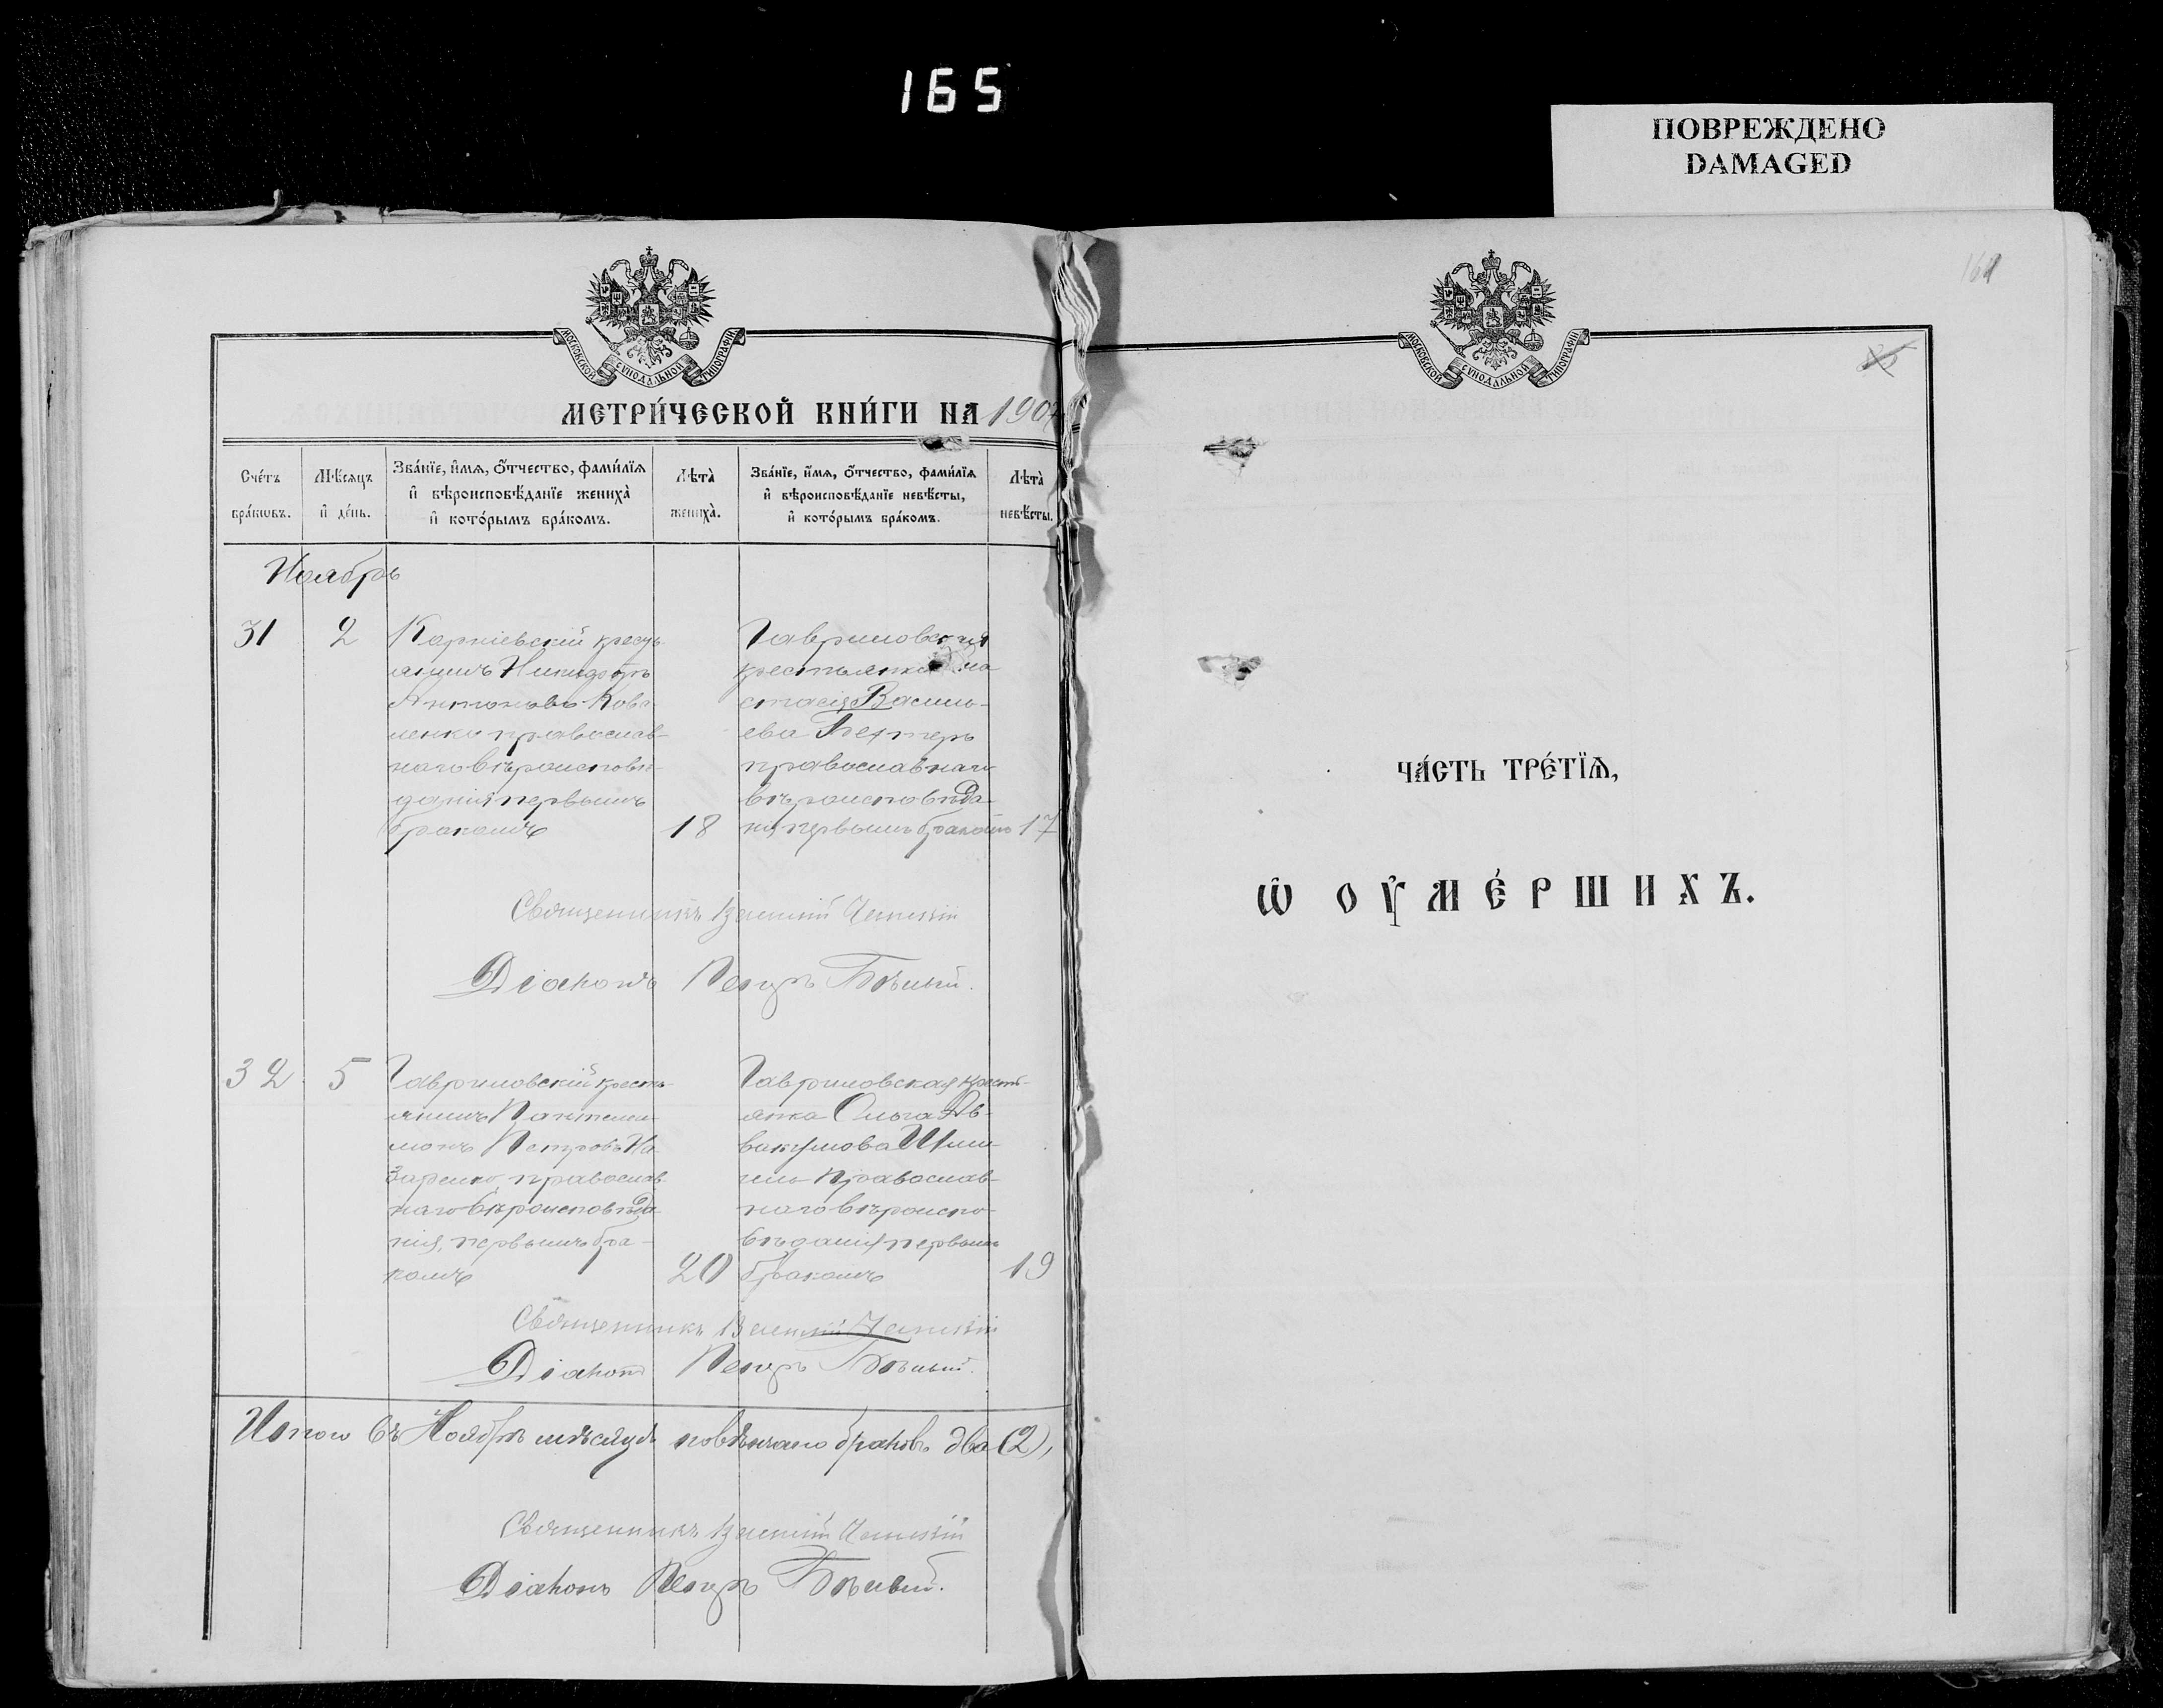 165
ПОВРЕЖДЕНО
DAMAGED
МОСКОВСКОЙ СѴНОДАЛЬНОЙ ТИПОГРАФІИ
МЕТРИ́ЧЕСКОЙ КНИ́ГИ НА 190
Сче́тъ бра́кѡвъ.
Мѣ́сяцъ и҆ де́нь.
Зва́нїе, и҆́мя, ѻ҆́тчество, фами́лїя
и҆ вѣроисповѣ́данїе жениха̀
и҆ кото́рымъ бра́комъ.
Лѣта̀ жениха̀.
Зва́нїе, и҆́мя, ѻ҆́тчество, фами́лїя
и҆ вѣроисповѣ́данїе невѣ́сты,
и҆ кото́рымъ бра́комъ.
Лѣта̀ невѣ́сты.
Ноябрь
31
2
крестъ-
янинъ Никифоръ
Антоновъ Кова-
ленко православ-
наго вѣроисповѣ-
данія первымъ
бракомъ
18
Гавриловская
крестьянка
стасія Василь-
ева
православнаго
вѣроисповѣда-
нія первымъ бракомъ
17
Священникъ Василій
Діаконъ Петръ
32
5
Гавриловскій кресть-
янинъ Пантелеи-
монъ Петровъ На-
заренко, православ-
наго вѣроисповѣда-
нія, первымъ бра-
комъ
20
Гавриловская крестъ-
янка Ольга Ав-
вакумова
православ-
наго вѣроиспо-
вѣданія первымъ
бракомъ
19
Священникъ Василій
Діаконъ Петръ
Итого въ Ноябрѣ мѣсяцѣ повѣнчано браковъ два (2),
Священникъ Василій
Діаконъ Петръ
МОСКОВСКОЙ СѴНОДАЛЬНОЙ ТИПОГРАФІИ
ЧА́СТЬ ТРЕ́ТЇѦ,
Ѡ҆ ОУ҆МЕ́РШИХЪ.